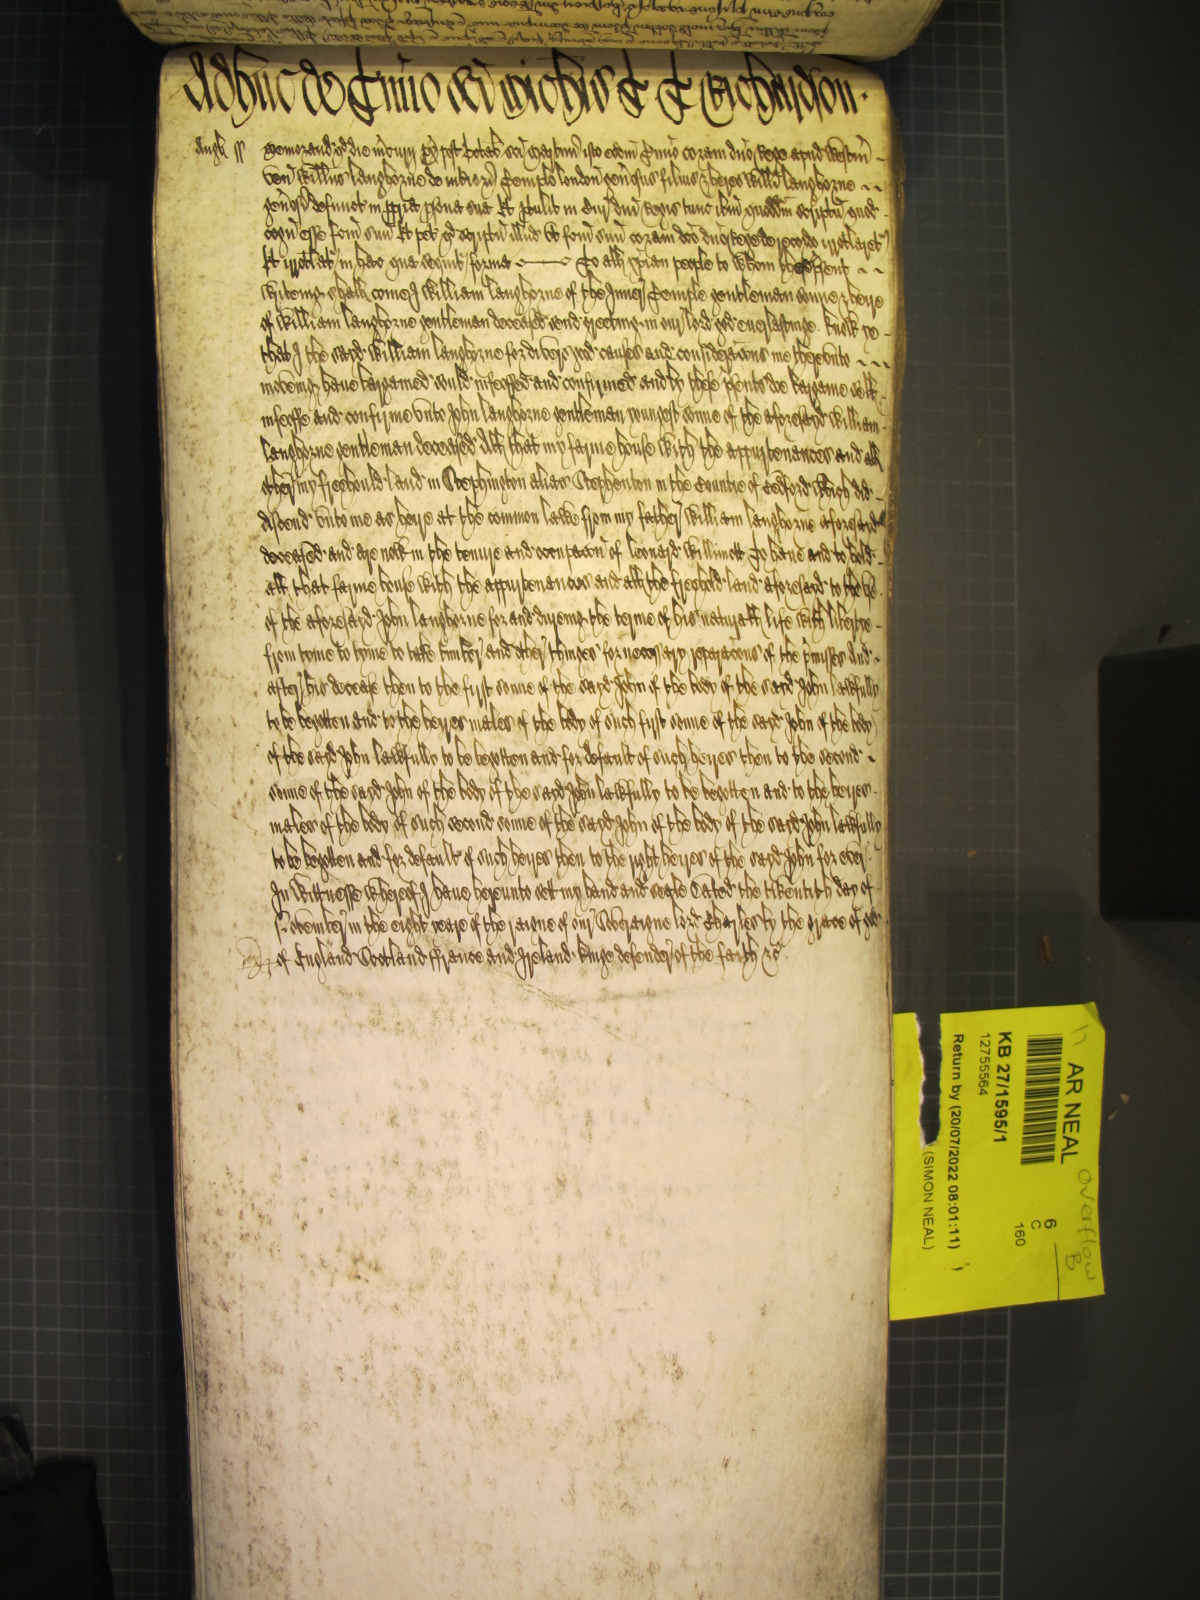 Adhuc de Termino sci Michis T T Richardson
Angl ss Memorand qd die mcurii px post Octab sci Martini isto eodm Termino coram dno Rege apud Westm
ven Willms Langhorne de interiori Templo london genosus filius & heres Willi Langhorne
genosi defunct in ppria psona sua Et ptulit in Cur dni Regis tunc ibm quoddm scriptu quod
cogn esse fcm suu Et pet qd scriptu illud ut fcm suu coram dco dno Rege de recordo irrotlaret
Et irrotlat in hac que sequit forma To all xpian people to whom these psent
writeing shall come I William Langhorne of the Inner Temple gentleman sonne & heire
of William Langhorne gentleman deceased send greeting in our lord god everlastinge. Know ye
that I the sayd William Langhorne for divers god causes and consideracons me thereunto
moveing have bargained sould infeoffed and confirmed and by these psents doe bargaine sell
infeoffe and confirme unto John Langhorne gentleman youngest sonne of the aforesayd William
Langhorne gentleman deceased All that my farme house with the appurtenances and all
other my freehould land in Stephington alias Stephenton in the Countie of Bedford which did
discend unto me as heire at the common lawe from my father William Langhorne aforesayd
deceased and are now in the tenure and occupacon of Leonard Willimott To have and to hold
all that farme house with the appurtenances and all the freehold land aforesayd to the use
of the aforesayd John Langhorne for and dureing the terme of his naturall life with libertye
from tyme to tyme to take timber and other thinges for necessary reparacons of the pmisses And
after his decease then to the first sonne of the sayd John of the body of the sayd John lawfully
to be begotten and to the heires males of the body of such first sonne of the sayd John of the body
of the sayd John lawfully to be begotten and for default of such heires then to the second
sonne of the sayd John of the body of the sayd John lawfully to be begotten and to the heires
males of the body of such second sonne of the sayd John of the body of the sayd John lawfully
to be begotten and for default of such heires then to the right heires of the sayd John for ever
In Wittnesse whereof I have hereunto sett my hand and seale Dated the twentith day of
November in the eight yeare of the raigne of our Soveraigne lord Charles by the grace of god
of England Scotland ffrance and Ireland kinge defender of the faith &c
AR NEAL
KB 27/1595/1
12755564
Return by (20/07/2022 08:01:11)
(SIMON NEAL)
6
C
160
Overflow
B